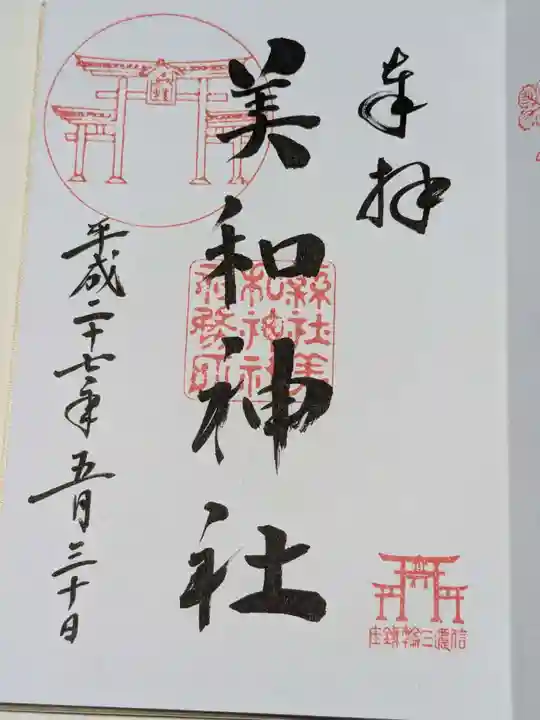 奉拝
美和神社
縣社美
和神社
社務所
平成二十七年五月三十日
信濃三輪鎮座